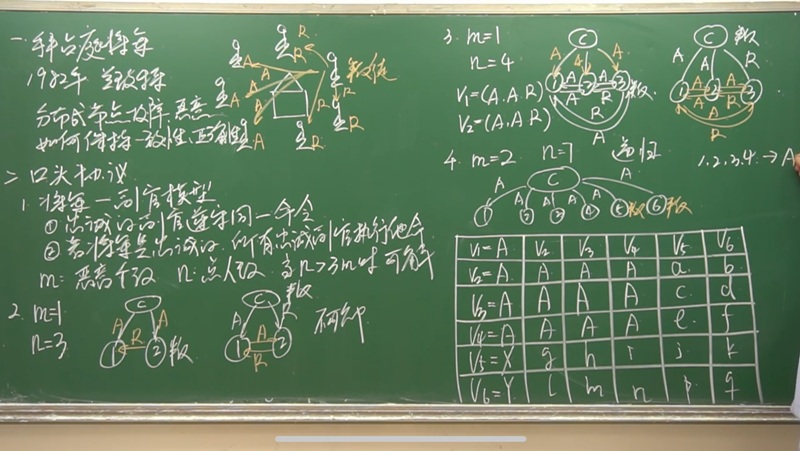 一. 拜占庭将军
1982年 兰波特
分布式节点故障、恶意
如何保持一致性、正确性
R R R
A A R 叛徒
A A R
A R R
二. 口头协议
1. 将军—副官模型
① 忠诚的副官遵守同一命令
② 若将军是忠诚的, 所有忠诚副官执行他命令
m: 恶意个数 n: 总人数 当 n>3m 时 可解决
2. m=1
n=3
C
A A
① R ② 叛
C 叛
A R
① A R ②
不可解
3. m=1
n=4
V₁=(A. A R)
V₂=(A, A R)
C
A A A
① A A ② A R ③ 叛
R
A
C 叛
A A R
① A A ② A R ③
R
4. m=2 n=7 递归
1. 2. 3. 4. → A
C
A A A A
① ② ③ ④ ⑤叛 ⑥叛
V₁=A V₂ V₃ V₄ V₅ V₆
V₂=A A A A a b
V₃=A A A A c d
V₄=A A A A e f
V₅=X g h i j k
V₆=Y l m n p q